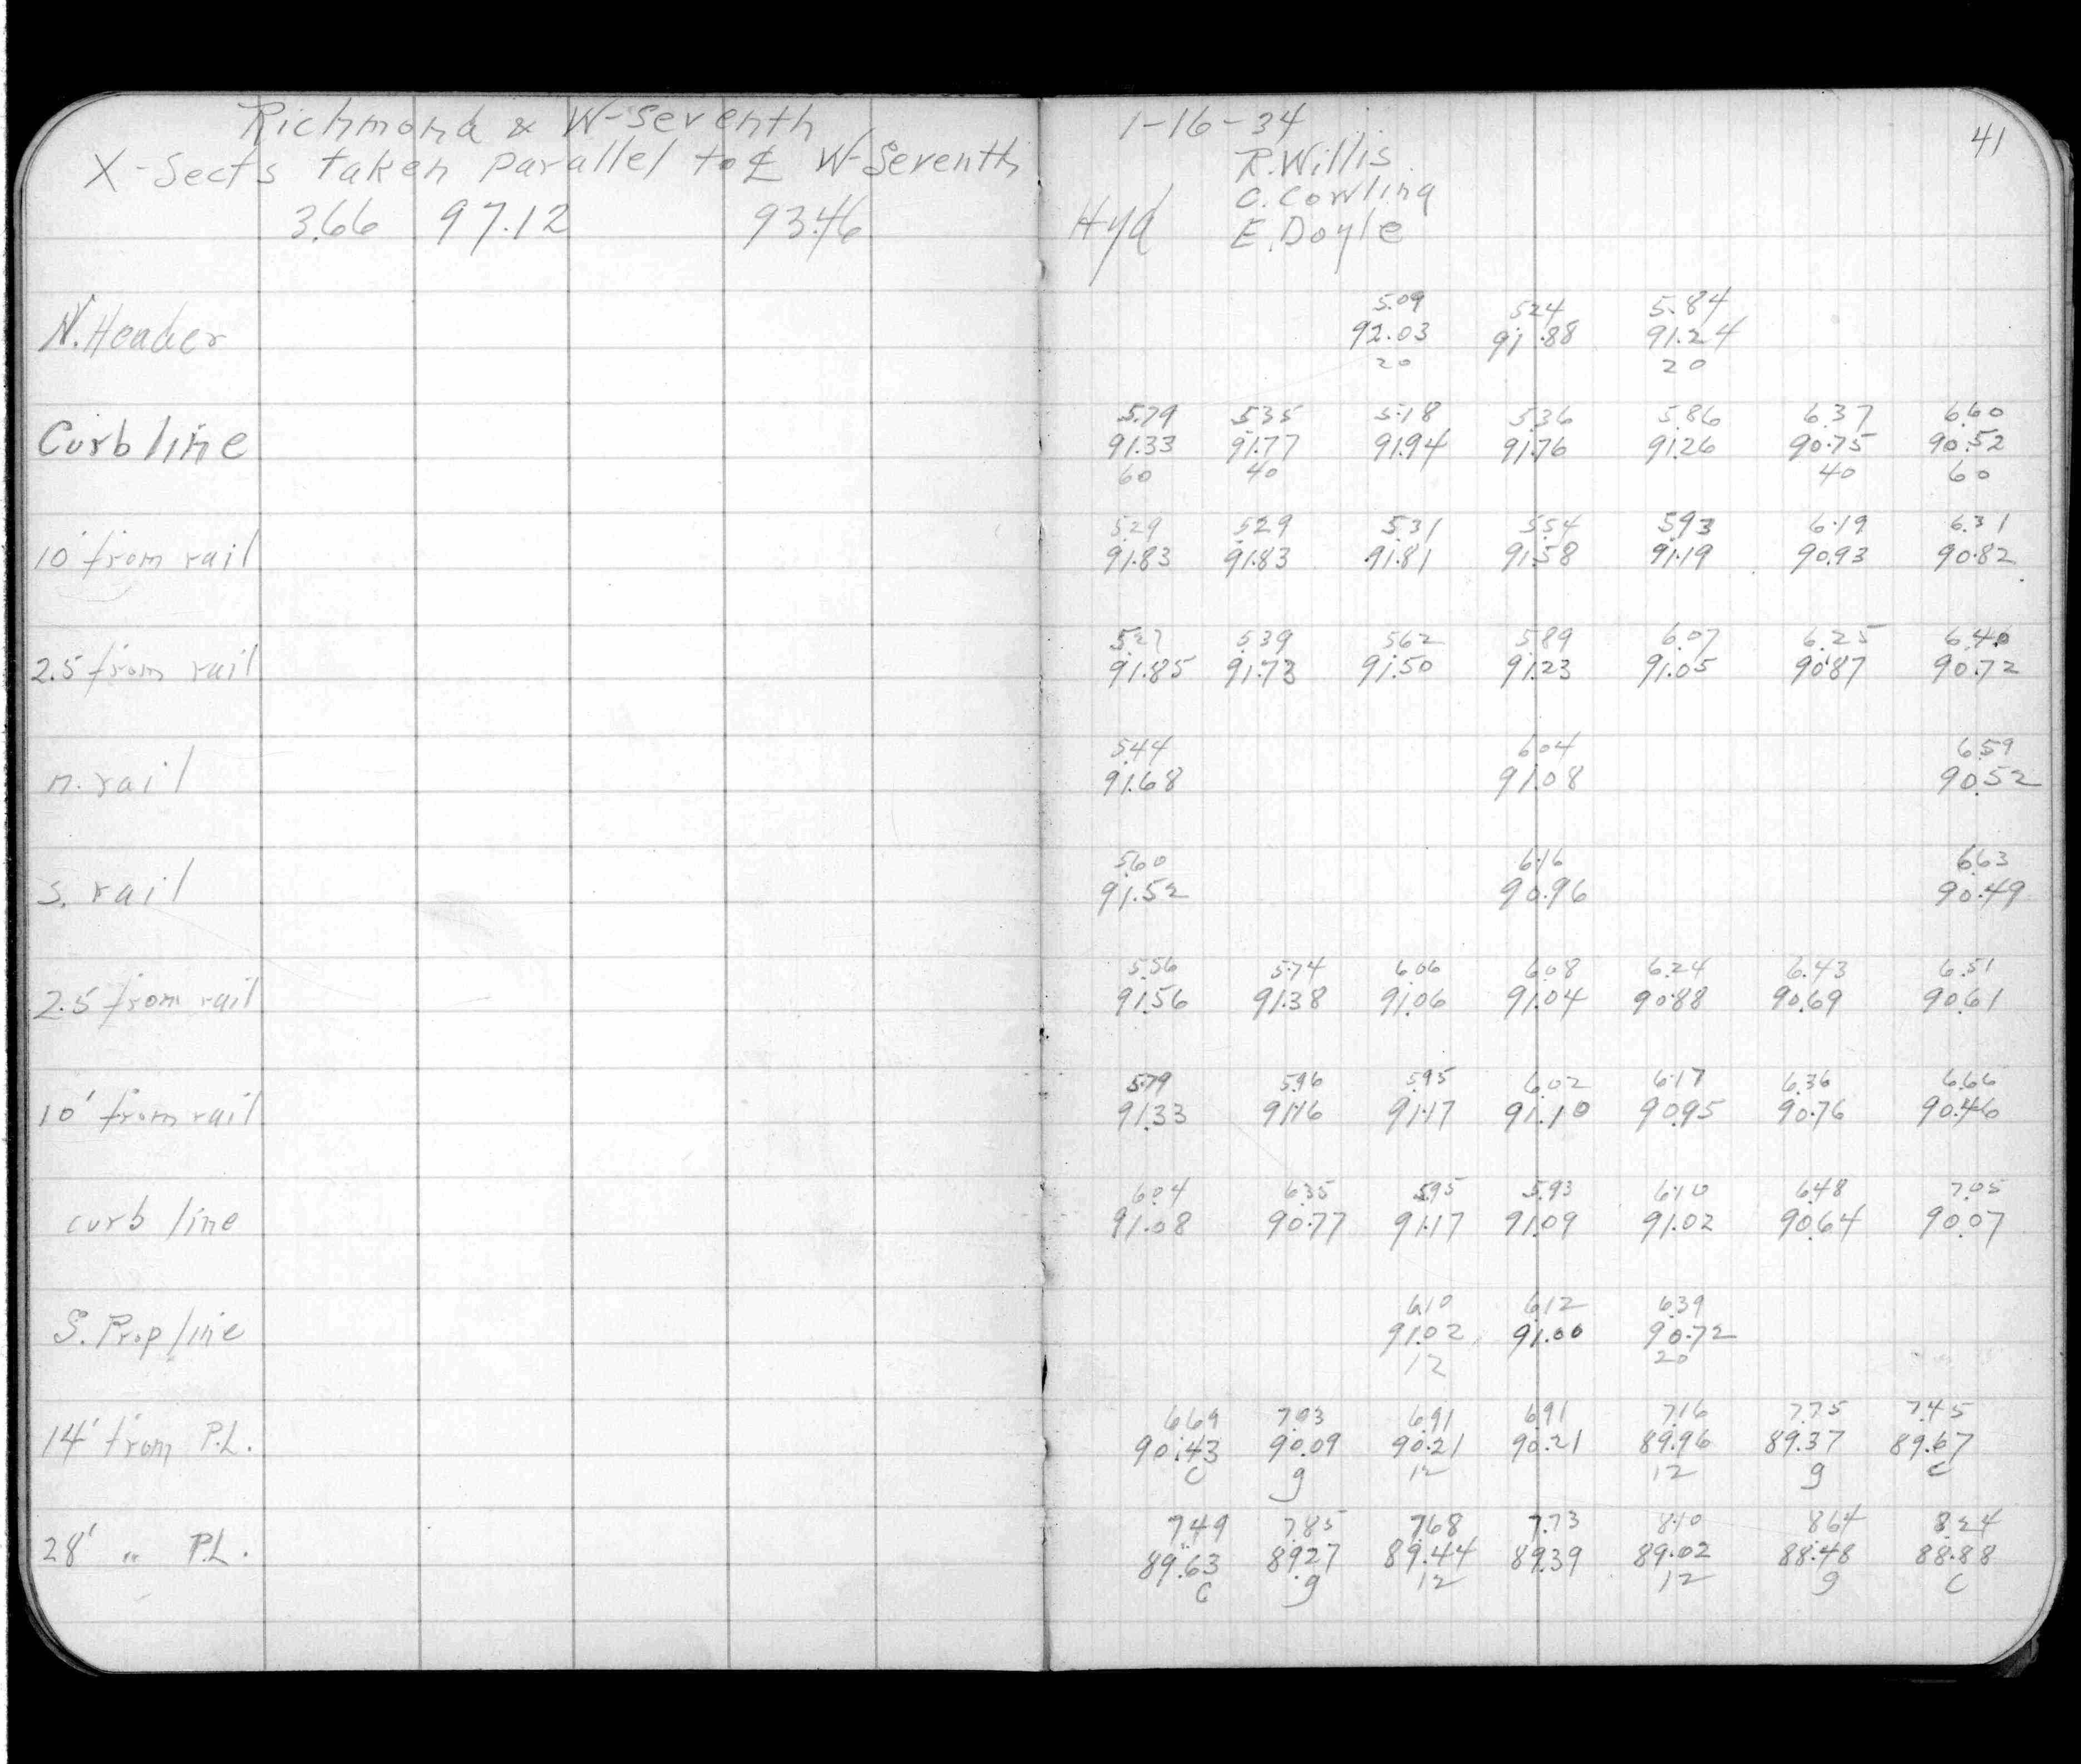 Richmond & W-Seventh
X-Sects taken parallel to ℄ W-Seventh
3.66 97.12 93.46
N. Header
Curb line
10' from rail
2.5 from rail
n. rail
s. rail
2.5 from rail
10' from rail
curb line
S. Prop line
14' from P.L.
28' " P.L.
1-16-34 41
R. Willis
C. Cowling
Hyd E. Doyle
5.09 5.24 5.84
92.03 91.88 91.24
20 20
5.79 5.35 5.18 5.36 5.86 6.37 6.60
91.33 91.77 91.94 91.76 91.26 90.75 90.52
60 40 40 60
5.29 5.29 5.31 5.54 5.93 6.19 6.31
91.83 91.83 91.81 91.58 91.19 90.93 90.82
5.27 5.39 5.62 5.89 6.07 6.25 6.40
91.85 91.73 91.50 91.23 91.05 90.87 90.72
5.44 6.04 6.59
91.68 91.08 90.52
5.60 6.16 6.63
91.52 90.96 90.49
5.56 5.74 6.06 6.08 6.24 6.43 6.51
91.56 91.38 91.06 91.04 90.88 90.69 90.61
5.79 5.96 5.95 6.02 6.17 6.36 6.66
91.33 91.16 91.17 91.10 90.95 90.76 90.46
6.04 6.35 5.95 5.93 6.10 6.48 7.05
91.08 90.77 91.17 91.09 91.02 90.64 90.07
6.10 6.12 6.39
91.02 91.00 90.72
12 20
6.69 7.03 6.91 6.91 7.16 7.75 7.45
90.43 90.09 90.21 90.21 89.96 89.37 89.67
C g 12 12 g C
7.49 7.85 7.68 7.73 8.10 8.64 8.24
89.63 89.27 89.44 89.39 89.02 88.48 88.88
C g 12 12 g C